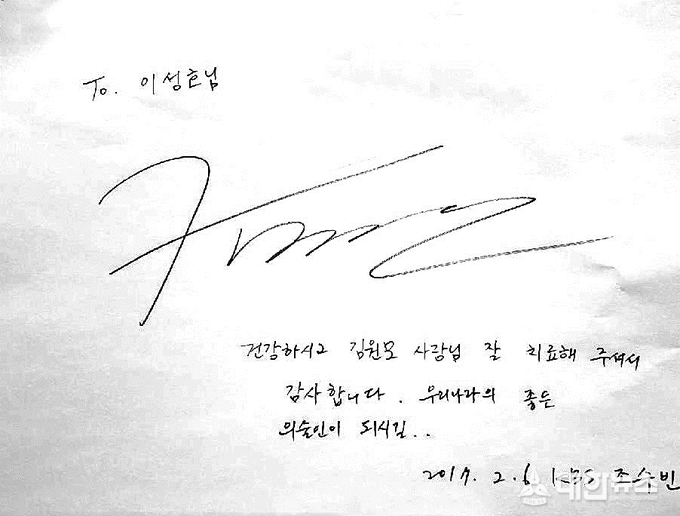 To. 이성호님
건강하시고 김원모 사장님 잘 치료해 주셔서
감사합니다. 우리나라의 좋은
의술인이 되시길..
2017. 2. 6 KBS 조수빈
대한뉴스